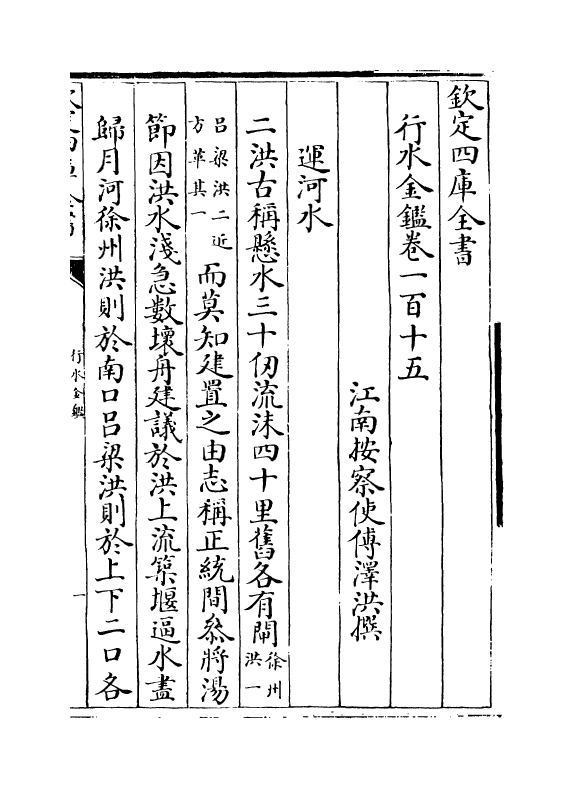 欽定四庫全書
行水金鑑卷一百十五
江南按察使傅澤洪撰
運河水
二洪古稱懸水三十仞流沫四十里舊各有閘徐州洪一
呂梁洪二近方革其一而莫知建置之由志稱正統間叅將湯
節因洪水淺急數壞舟建議於洪上流築堰逼水盡
歸月河徐州洪則於南口呂梁洪則於上下二口各
行水金鑑
一